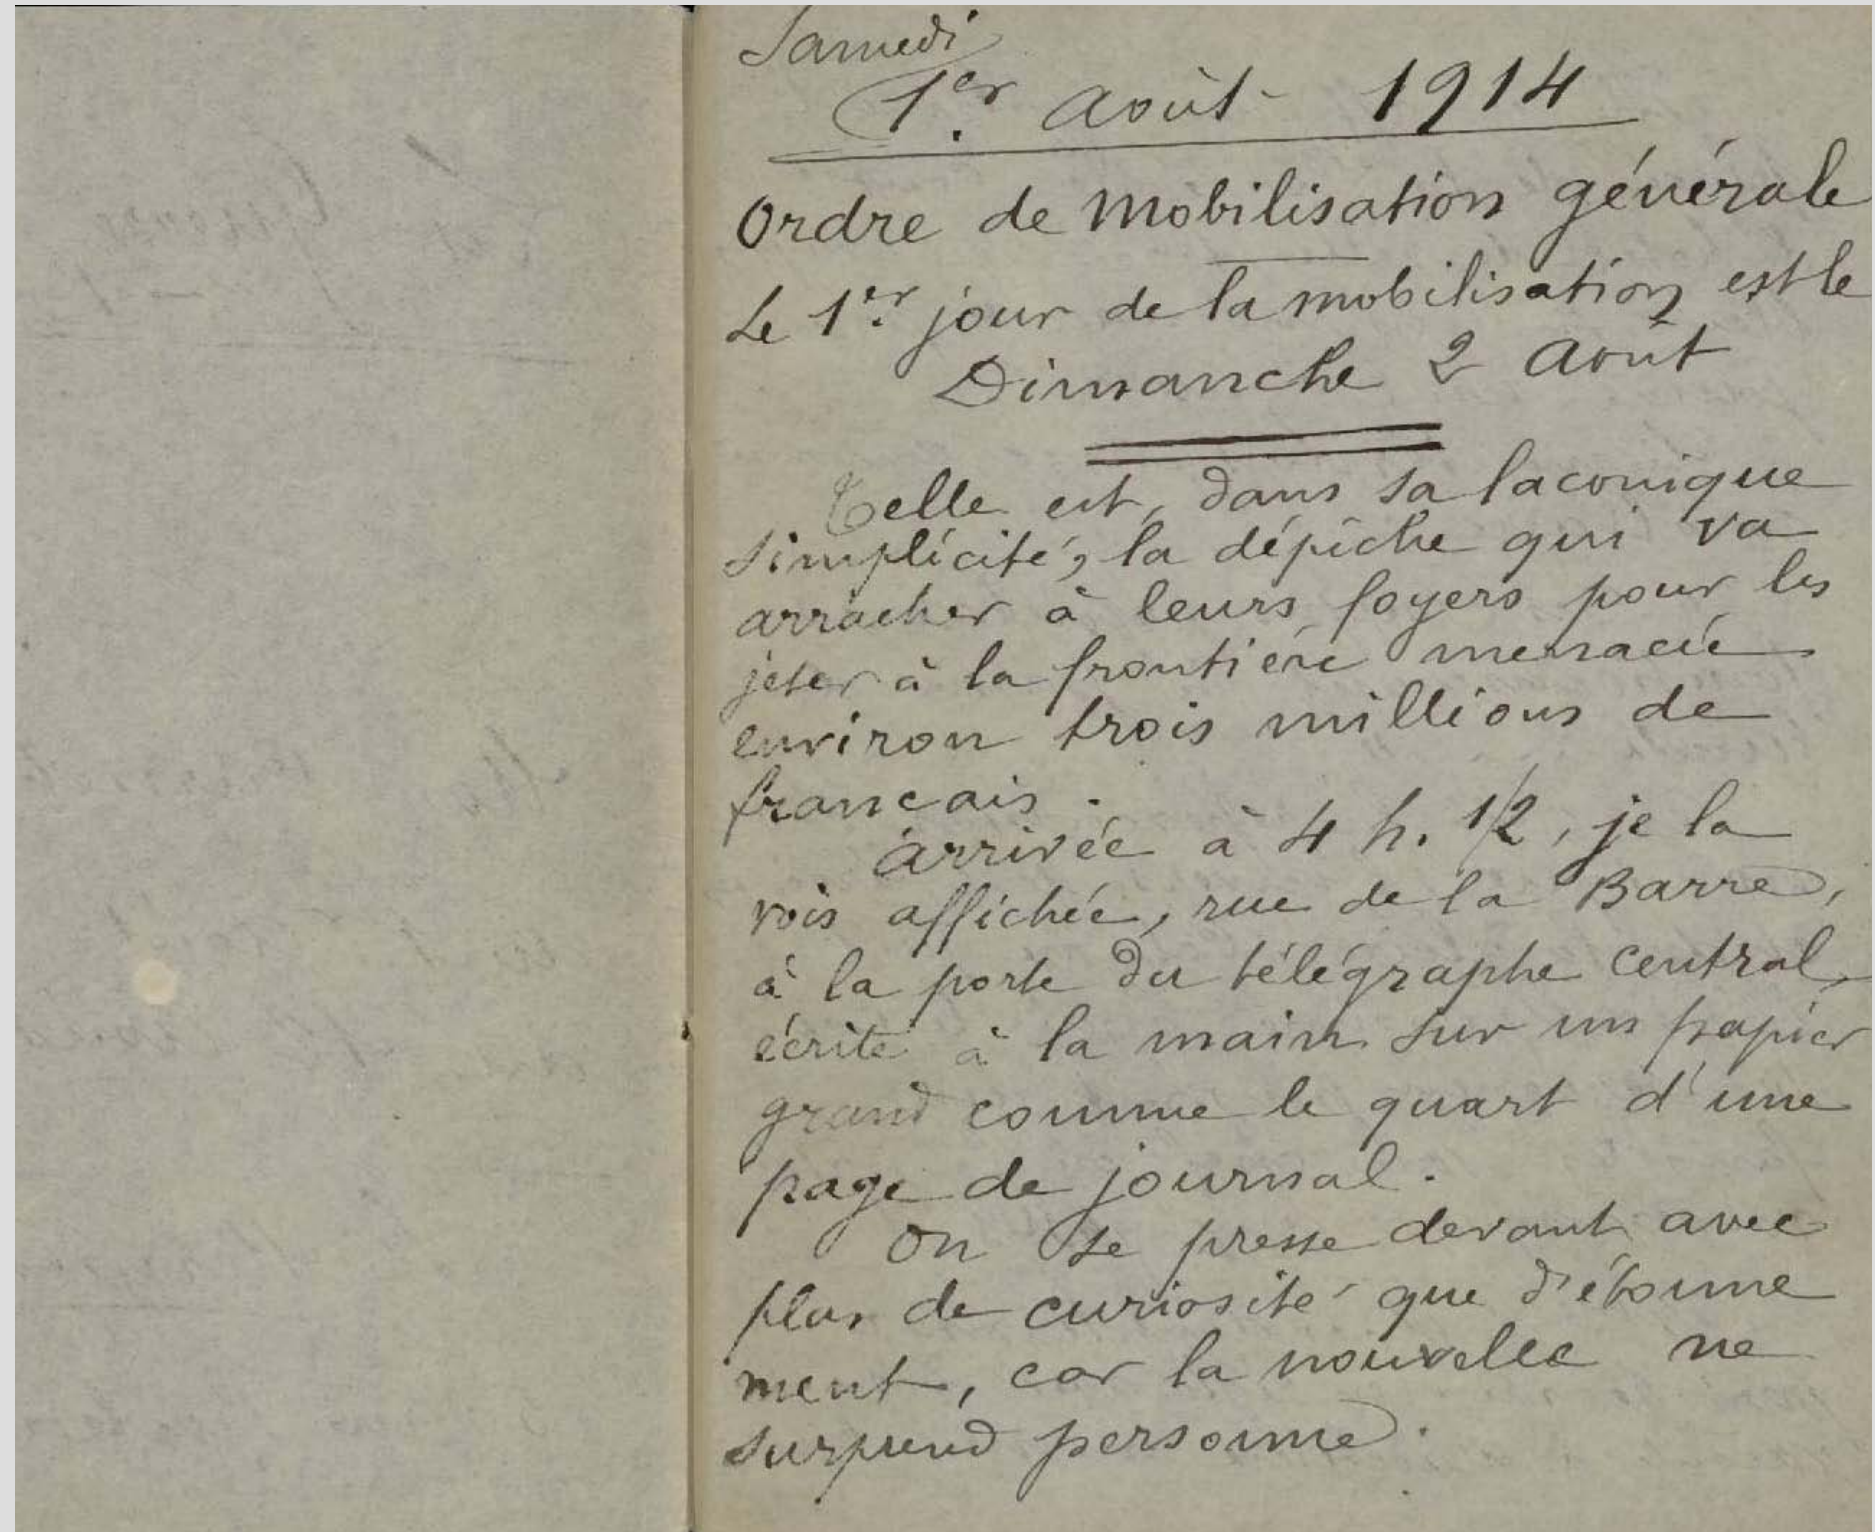 Samedi
1er Août 1914
Ordre de Mobilisation générale
Le 1er jour de la mobilisation est le
Dimanche 2 Août
Telle est, dans sa laconique
simplicité, la dépêche qui va
arracher à leurs foyers pour les
jeter à la frontière menacée
environ trois millions de
francais.
Arrivée à 4 h. 1/2, je la
vois affichée, rue de la Barre,
à la porte du télégraphe central,
écrite à la main sur un papier
grand comme le quart d'une
page de journal.
On se presse devant avec
plus de curiosité que d'étonne
ment, car la nouvelle ne
surprend personne.